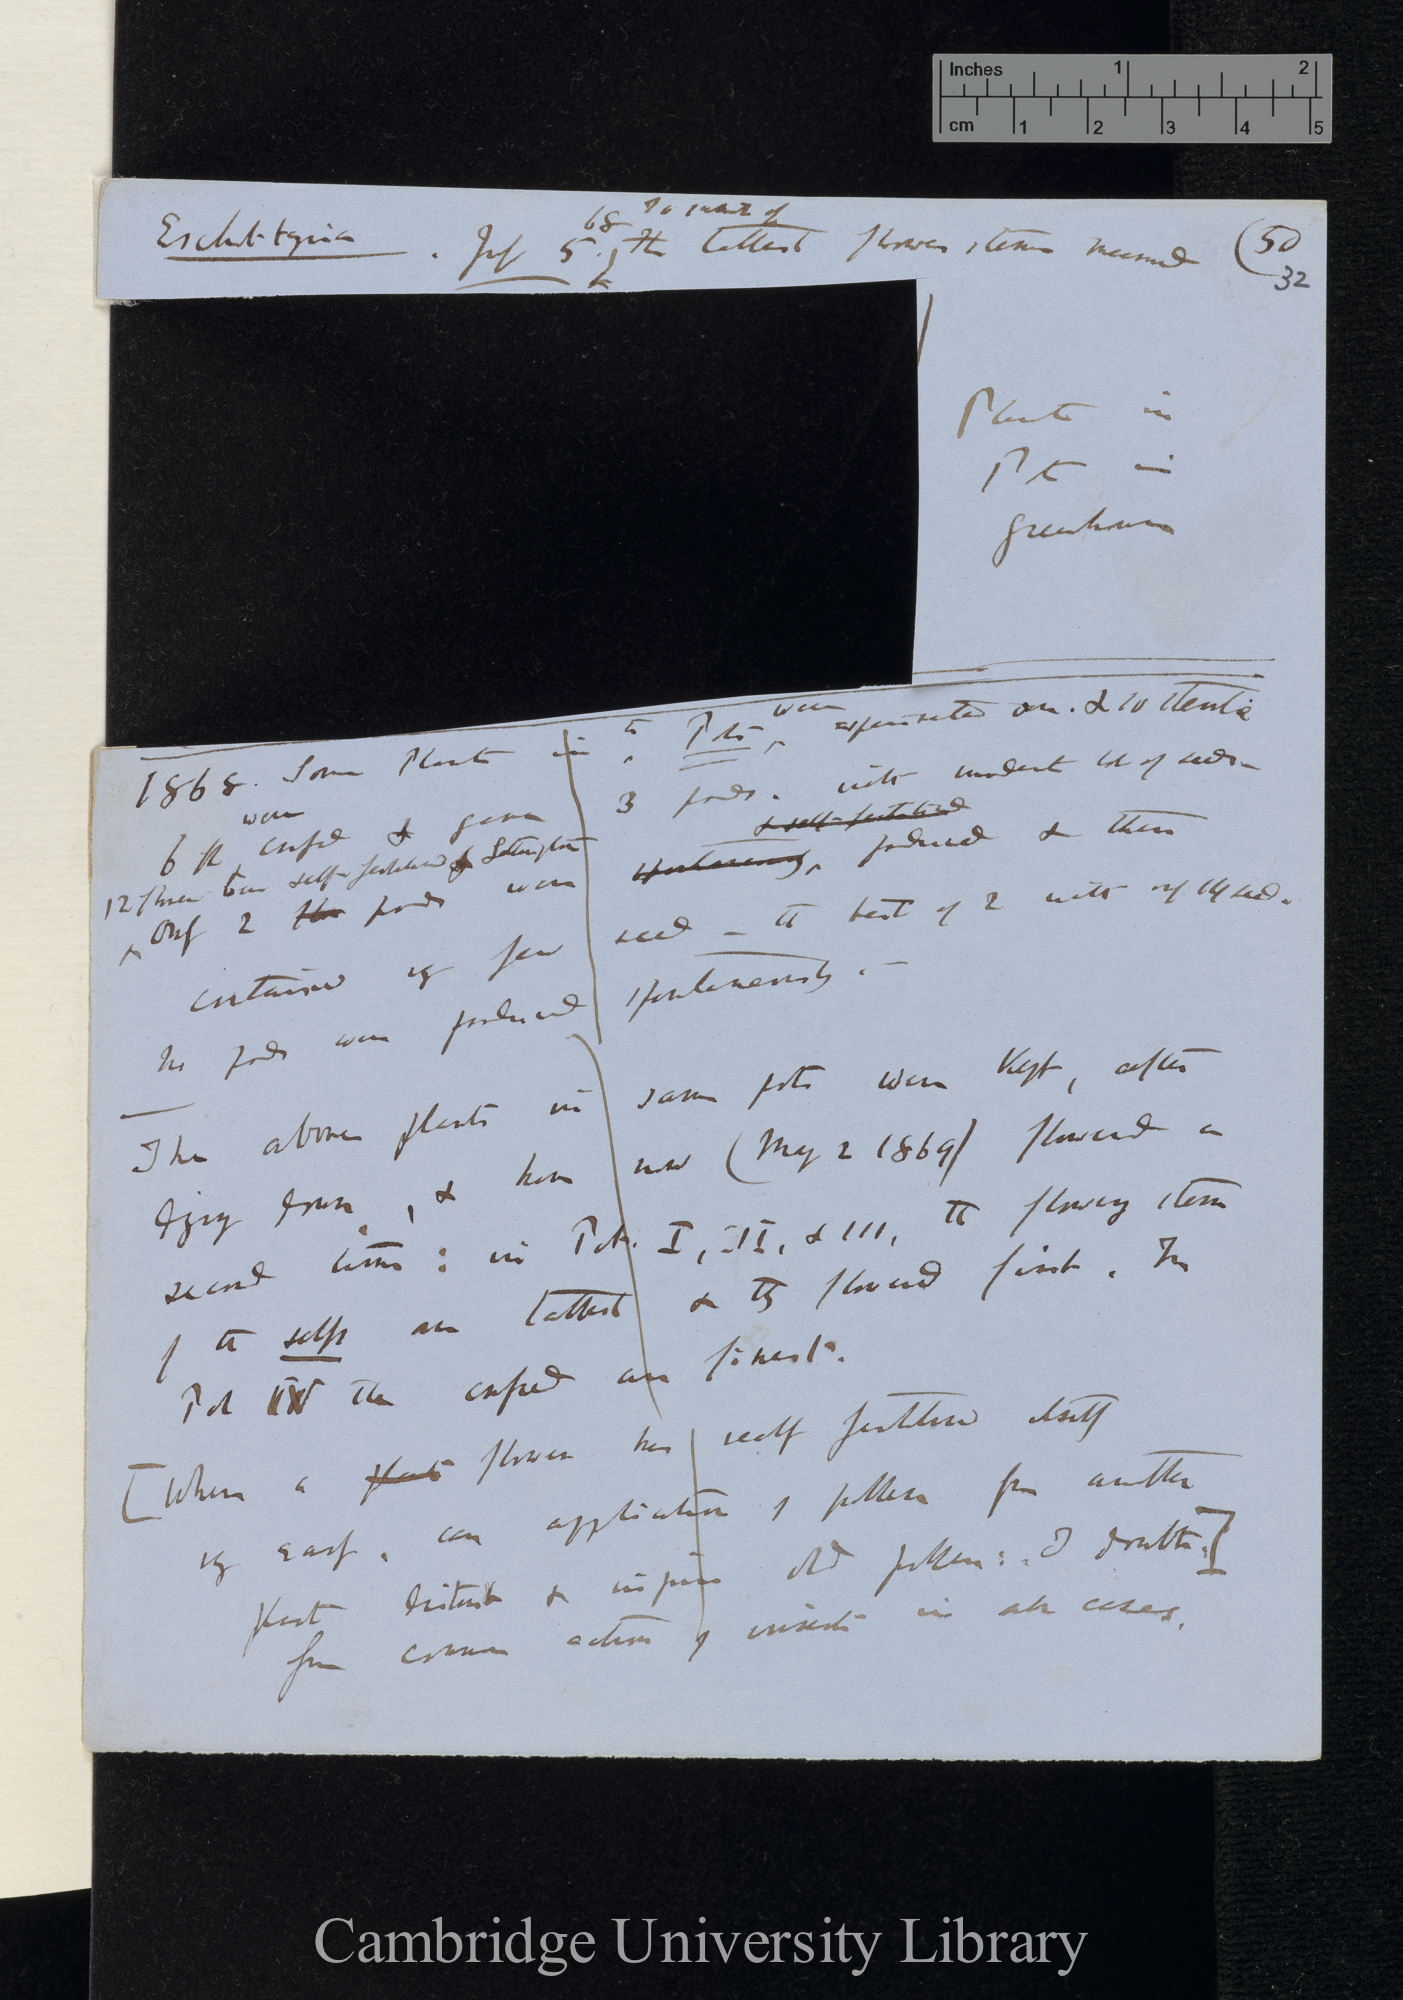 Inches 1 2
cm 1 2 3 4 5
Eschscholtzia . July 5. 68 The tallest flower stems measured (50
32
Plants in
Pots in
greenhouse
1868. Some Plants in Pots were experimented on. & to
6 fl were crossed & gave 3 pods. with seeds
12 flowers were self-fertilised
Only 2 pods were spontaneously & self-fertilised produced & these
contained very few seed — the best of 2 with only 14 seeds.
No pods were produced spontaneously. —
The above plants in same pots were kept, after
dying down, & have now (May 2 1869) flowered a
second time: in Pots. I, III, & III, the flowering stems
of the selfs are tallest & they flowered first. In
Pot IV the crossed are finest.
[When a plant flower has self fertilised itself
very early. can application of pollen from another
plant disturb & injure old pollen: I doubt.]
from common action of insects in all cases.
Cambridge University Library